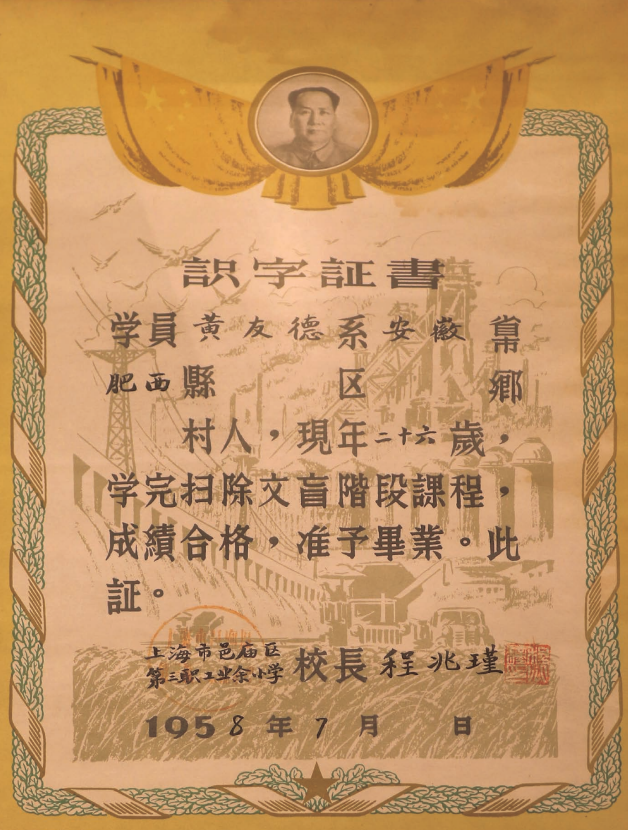 識字証書
学員黄友德系安徽省市
肥西縣 区 鄉
村人，現年二十六歲，
学完扫除文盲階段課程，
成績合格，准予畢業。此
証。
上海市邑庙区
第三职工业余小学
校長程兆瑾
1958年7月 日